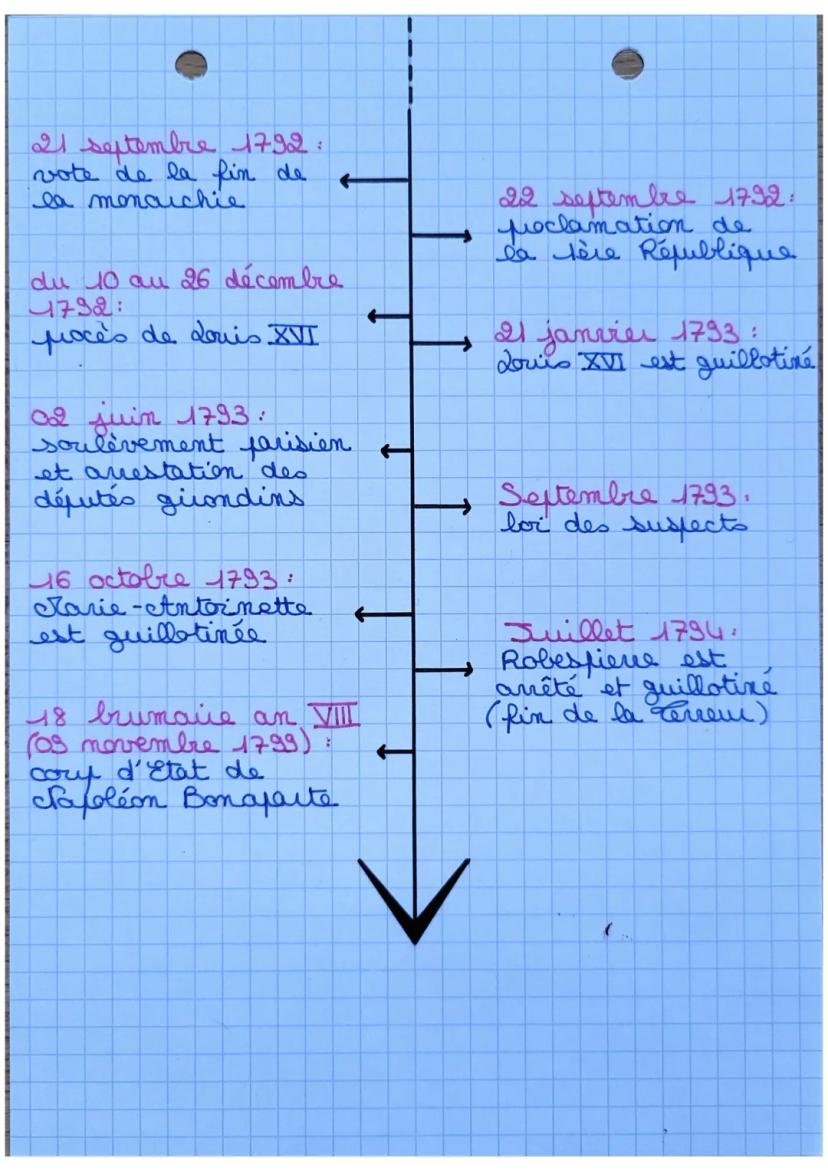 21 septembre 1792 :
vote de la fin de
la monarchie
22 septembre 1792 :
proclamation de
la 1ère République
du 10 au 26 décembre
1792 :
procès de Louis XVI
21 janvier 1793 :
Louis XVI est guillotiné
02 juin 1793 :
soulèvement parisien
et arrestation des
députés girondins
Septembre 1793 :
loi des suspects
16 octobre 1793 :
Marie-Antoinette
est guillotinée
Juillet 1794 :
Robespierre est
arrêté et guillotiné
(fin de la Terreur)
18 brumaire an VIII
(09 novembre 1799) :
coup d'Etat de
Napoléon Bonaparte